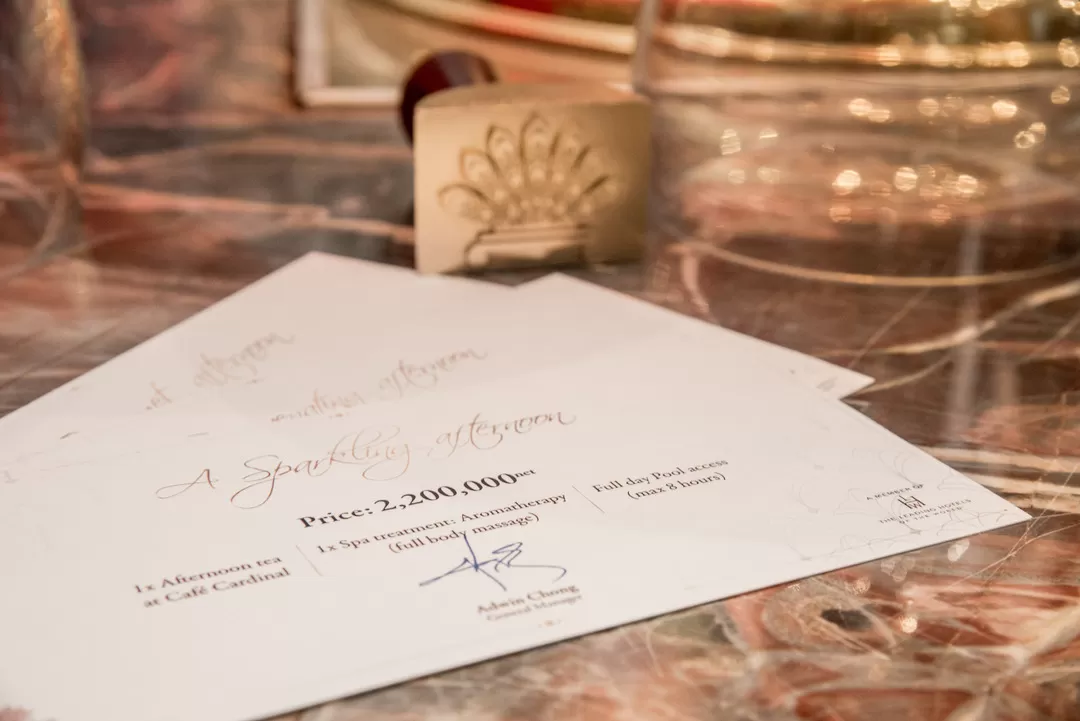 et afternoon
afternoon
A Sparkling afternoon
Price: 2,200,000net
1x Afternoon tea
at Café Cardinal
1x Spa treatment: Aromatherapy
(full body massage)
Full day Pool access
(max 8 hours)
Adwin Chong
General Manager
A MEMBER OF
THE LEADING HOTELS
OF THE WORLD